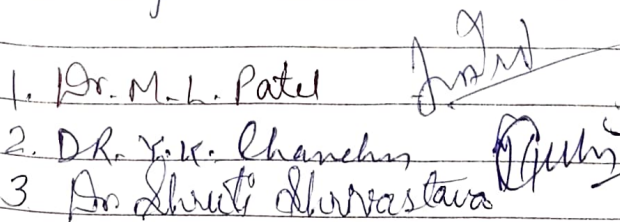 1. Dr. M. L. Patel
2. DR. Y. K. Chandra
3 Dr Shruti Shrivastava